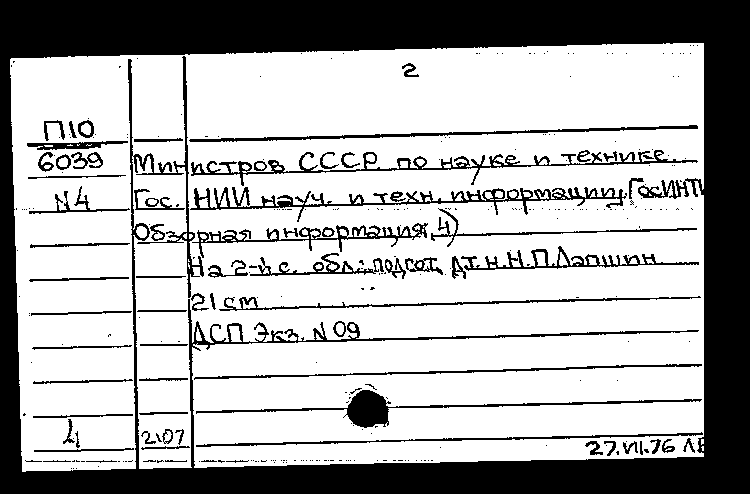 2
П10
6039 Министров СССР по науке и технике.
N4 Гос. НИИ науч. и техн. информации. ГосИНТИ
Обзорная информация, 4)
На 2-й с. обл.: подгот. д.т.н. Н.П. Лапшин
21 cm
ДСП Экз. N 09
4 2107
27.VII.76 ЛЕ